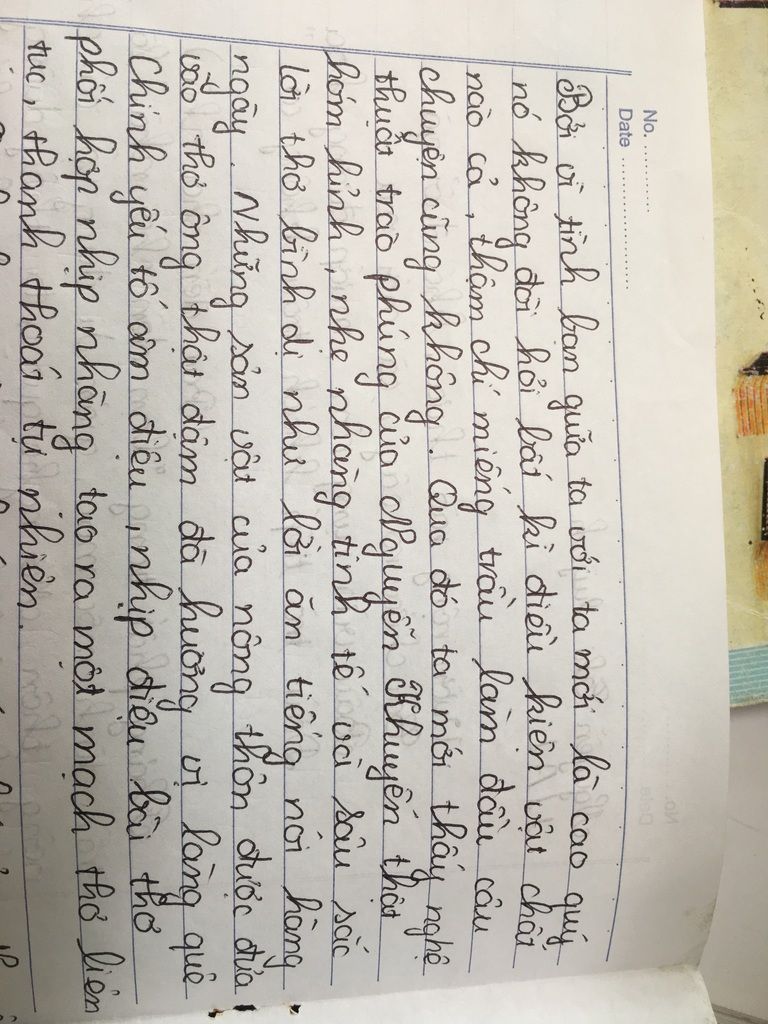 No. ..........
Date ......................
Bởi vì tình bạn giữa ta với ta mới là cao quý
nó không đòi hỏi bất kì điều kiện vật chất
nào cả, thậm chí miếng trầu làm đầu câu
chuyện cũng không. Qua đó ta mới thấy nghệ
thuật trào phúng của Nguyễn Khuyến thật
hóm hỉnh, nhẹ nhàng tinh tế và sâu sắc
lời thơ bình dị như lời ăn tiếng nói hàng
ngày. Những sản vật của nông thôn được đưa
vào thơ ông thật đậm đà hương vị làng quê
Chính yếu tố âm điệu, nhịp điệu bài thơ
phối hợp nhịp nhàng tạo ra một mạch thơ liên
tục, thanh thoát tự nhiên.